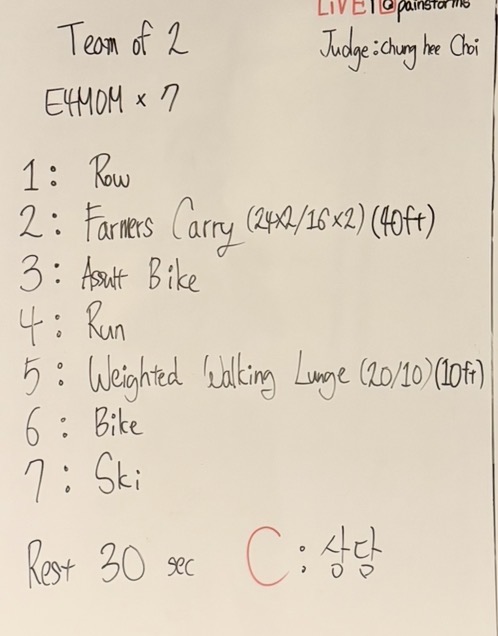 LIVE @painstorms
Team of 2
Judge: chung hee Choi
E4MOM × 7
1: Row
2: Farmers Carry (24×2/16×2)(40ft)
3: Assult Bike
4: Run
5: Weighted Walking Lunge (20/10)(10ft)
6: Bike
7: Ski
Rest 30 sec
C: 상당